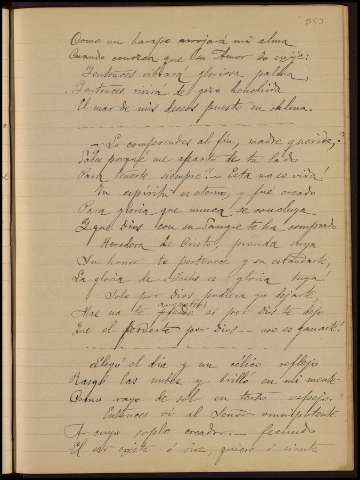 353
Como un harapo arrojará mi alma
Cuando conozca que su Amor lo exije:
Entonces vibrará gloriosa palma,
Entonces vivirá de gozo henchida
El mar de mis deseos puesto en calma.
¿Lo comprendes al fin, madre querida,?
¿Sabe porque me aparto de tu lado
Para suerte siempre? Esta no es vida!
Tu espíritu es eterno, y fue creado
Para gloria que nunca se concluya
Y que Dios con su Sangre te ha comprado
Heredera de Cristo, prenda suya
Su honor te pertenece y su estandarte,
La gloria de Jesús es gloria tuya!
Solo por Dios pudiera yo dejarte,
Mas no te angusties si por Dios te dejo
Que el perderte por Dios — no es ganarte!
Llegó el día y un célico reflejo
Rasgó las nubes y brilló en mi mente
Como rayo de sol en terso espejo.
Entonces vi al Señor omnipotente
A cuyo soplo creador — fecundo
El ser existe ó vive, quiere ó siente